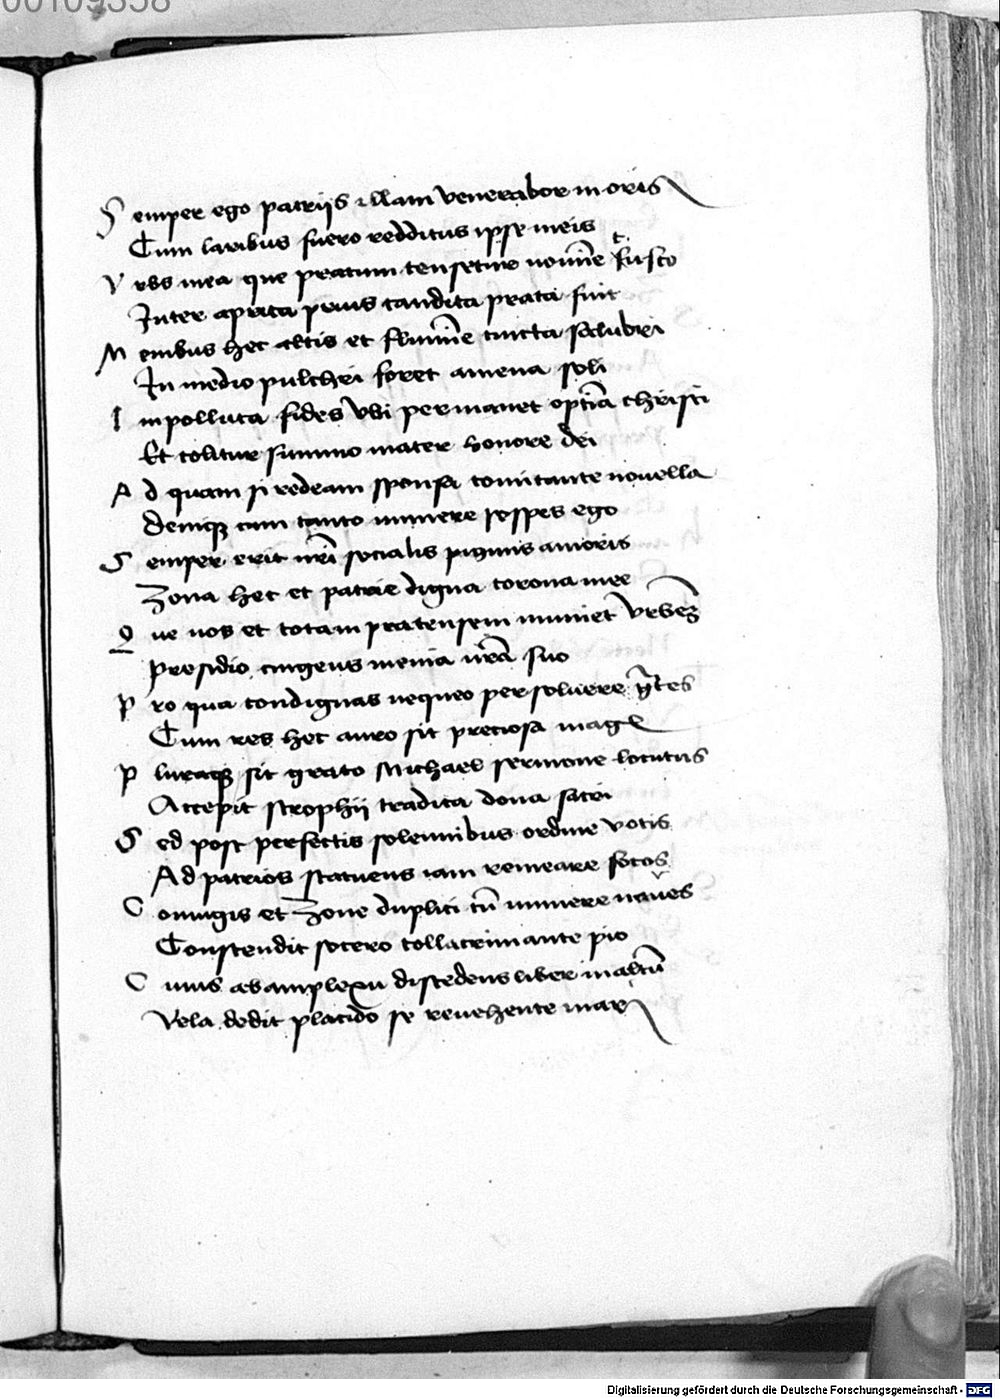 00109358
Semper ego patrijs illam venerabor in oris
Cum laribus fuero redditus ipse meis
Vrbs mea que pratum censetur noīne tusco
Inter aprica prius candida prata fuit
Menibus hec altis et flumīe cincta salubri
In medio pulchri foret amena soli
Inpolluta fides vbi permanet optīa christi
Et colitur summo mater honore dei
Ad quam si redeam sponsa comitante nouella
Deniqꝫ cum tanto munere sospes ego
Semper erit nr̄i socialis pignus amoris
Zona hec et patrie digna corona mee
Que nos et totam pratensem muniet vrbeꝫ
Presidio cingens menia nr̄a suo
Pro qua condignas nequeo persoluere gr̄tes
Cum res hec auro sit preciosa mage
Pluraqꝫ sit grato Michael sermone locutus
Accepit strophij tradita dona sacri
Sed post perfectis solennibus ordine votis
Ad patrios statuens iam remeare focos
Coniugis et Zone duplici cū munere naues
Conscendit socero collacrimante pio
Cuius ab amplexu discedens liber in altū
Vela dedit placido se reuehente mari
Digitalisierung gefördert durch die Deutsche Forschungsgemeinschaft - DFG